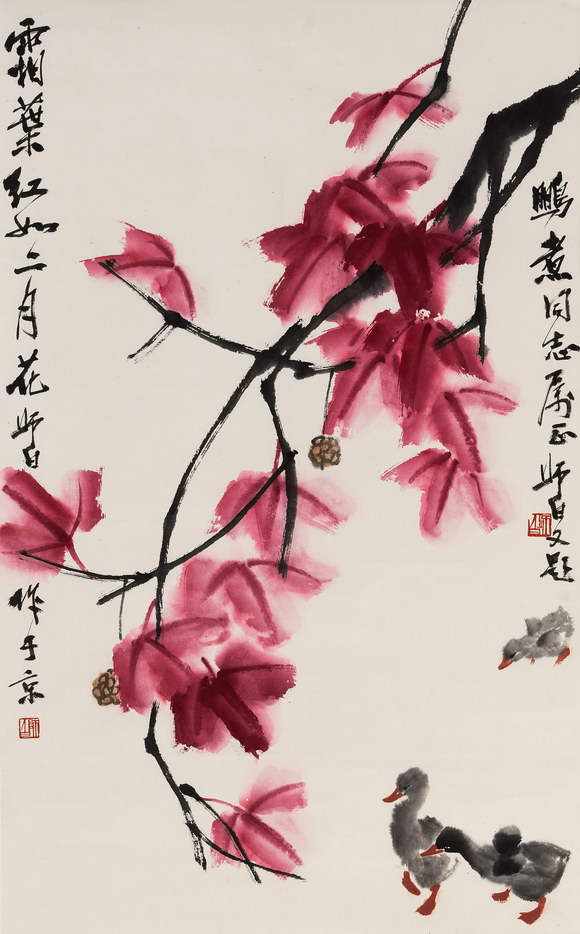 鵬煮同志属正师白又题
霜葉红如二月花师白
作于京